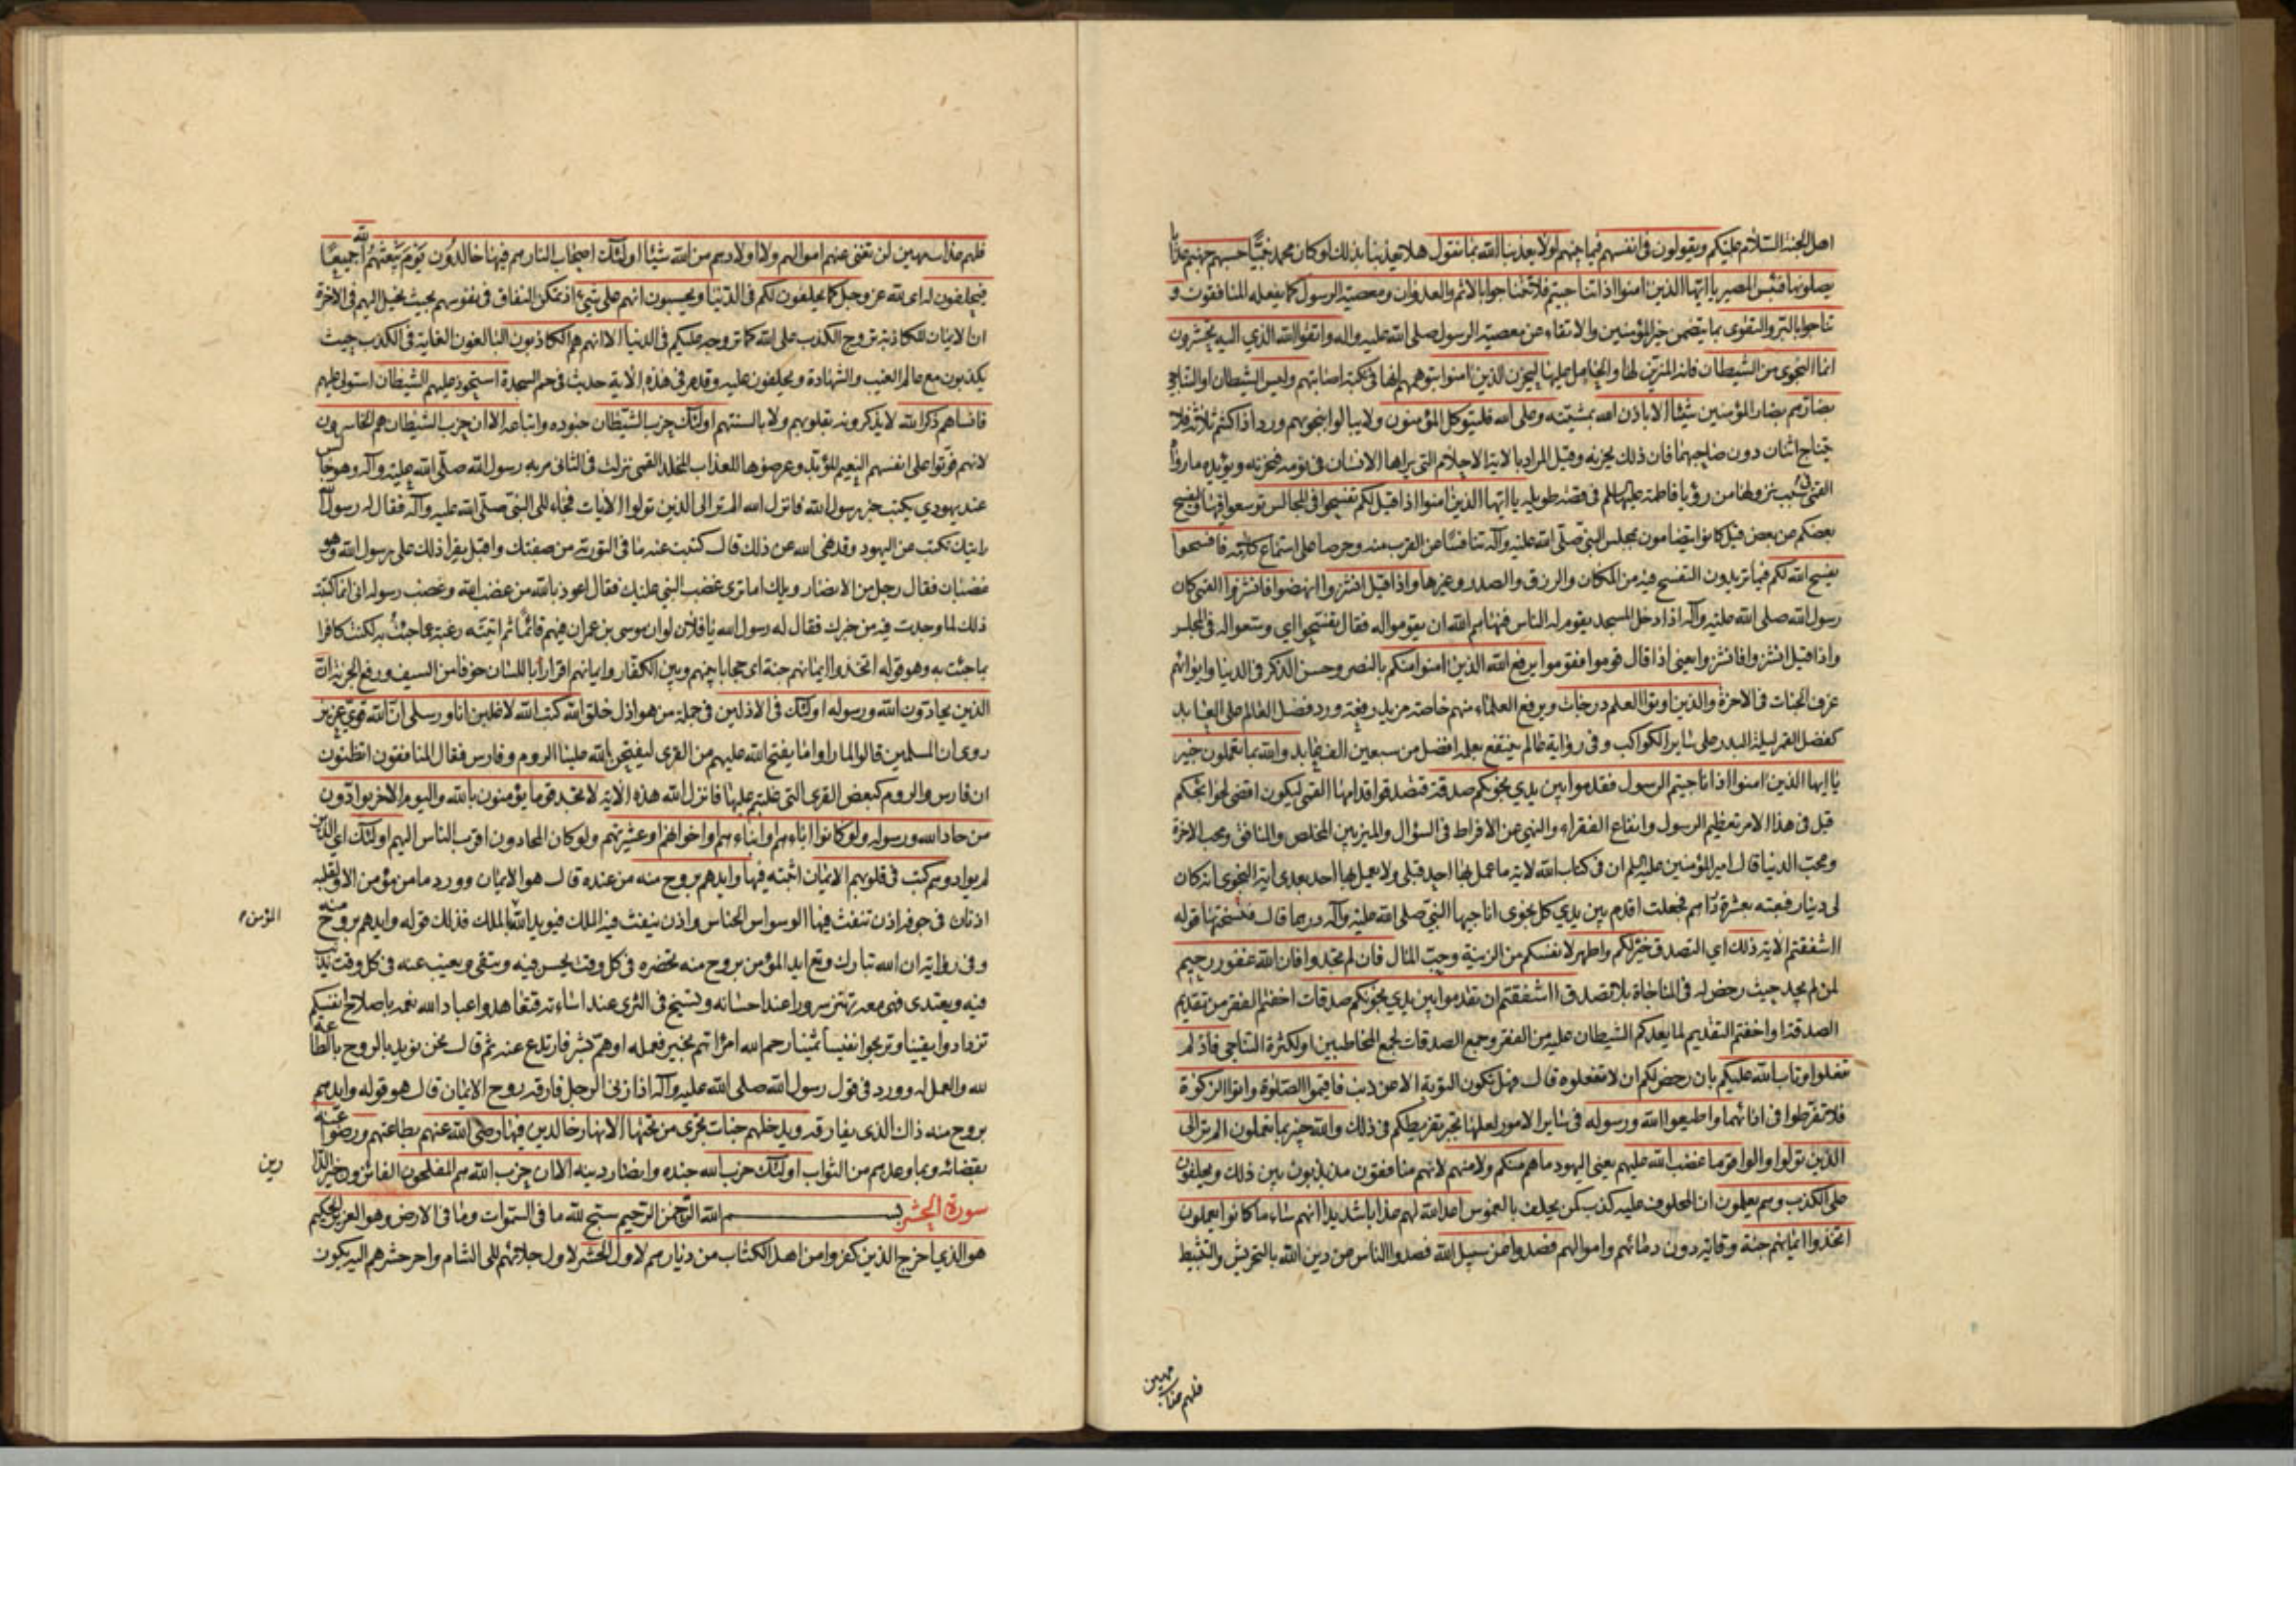 اهل الجنة السلام عليكم ويقولون في انفسهم فيما بينهم لولا يعذبنا الله بما نقول هلا يعذبنا بذلك لو كان محمد نبيًّا حسبهم جهنم عذابا
يصلونها فبئس المصير يا ايها الذين امنوا اذا تناجيتم فلا تتناجوا بالاثم والعدوان ومعصية الرسول كما يفعله المنافقون و
تناجوا بالبر والتقوى بما يتضمن خير المؤمنين والاتقاء عن معصية الرسول صلى الله عليه واله واتقوا الله الذي اليه تحشرون
انما النجوى من الشيطان فانه المزين لها والحامل عليها ليحزن الذين امنوا بتوهمهم انها في نكبة اصابتهم وليس الشيطان او التناجي
بضارهم بضار المؤمنين شيئا الا باذن الله بمشيته وعلى الله فليتوكل المؤمنون ولا يبالوا بنجويهم ورد اذا كنتم ثلاثة فلا
يتناج اثنان دون صاحبهما فان ذلك يحزنه وقيل المراد بالاية الاحلام التي يراها الانسان في نومه فتحزنه ويؤيده ما رواه
القمي في سبب نزولها من رؤيا فاطمة عليها السلم في قصة طويلة يا ايها الذين امنوا اذا قيل لكم تفسحوا في المجالس توسعوا فيها وليفسح
بعضكم عن بعض قيل كانوا يتضامون بمجلس النبي صلى الله عليه وآله تنافسا عن القرب منه وحرصا على استماع كلامه فافسحوا
يفسح الله لكم فيما تريدون التفسح فيه من المكان والرزق والصدر وغيرها واذا قيل انشزوا انهضوا فانشزوا القمي كان
رسول الله صلى الله عليه وآله اذا دخل المسجد يقوم له الناس فنهاهم الله ان يقوموا له فقال تفسحوا اي وسعوا له في المجلس
واذا قيل انشزوا فانشزوا يعني اذا قال قوموا فقوموا يرفع الله الذين امنوا منكم بالنصر وحسن الذكر في الدنيا وايوائهم
غرف الجنات في الاخرة والذين اوتوا العلم درجات ويرفع العلماء منهم خاصة مزيد رفعة ورد فضل العالم على العابد
كفضل القمر ليلة البدر على سائر الكواكب وفي رواية عالم ينتفع بعلمه افضل من سبعين الف عابد والله بما تعملون خبير
يا ايها الذين امنوا اذا ناجيتم الرسول فقدموا بين يدي نجويكم صدقة فتصدقوا قدامها القمي ليكون اقضى لحوائجكم
قيل في هذا الامر تعظيم الرسول وانفاع الفقراء والنهي عن الافراط في السؤال والميز بين المخلص والمنافق ومحب الاخرة
ومحب الدنيا قال امير المؤمنين عليه السلم ان في كتاب الله لاية ما عمل بها احد قبلي ولا يعمل بها احد بعدي اية النجوى انه كان
لي دينار فبعته بعشرة دراهم فجعلت اقدم بين يدي كل نجوى اناجيها النبي صلى الله عليه وآله درهما قال فنسختها قوله
ااشفقتم الاية ذلك اي التصدق خير لكم واطهر لانفسكم من الريبة وحب المال فان لم تجدوا فان الله غفور رحيم
لمن لم يجد حيث رخص له في المناجاة بلا تصدق ااشفقتم ان تقدموا بين يدي نجويكم صدقات اخفتم الفقر من تقديم
الصدقة او اخفتم التقديم لما يعدكم الشيطان عليه من الفقر وجمع الصدقات لجمع المخاطبين او لكثرة التناجي فاذ لم
تفعلوا وتاب الله عليكم بان رخص لكم ان لا تفعلوه قال فهل تكون التوبة الا عن ذنب فاقيموا الصلوة واتوا الزكوة
فلا تفرطوا في ادائهما واطيعوا الله ورسوله في سائر الامور لعلها تجبر تفريطكم في ذلك والله خبير بما تعملون الم تر الى
الذين تولوا والوا قوما غضب الله عليهم يعني اليهود ما هم منكم ولا منهم لانهم منافقون مذبذبون بين ذلك ويحلفون
على الكذب وهم يعلمون ان المحلوف عليه كذب كمن يحلف بالغموس اعد الله لهم عذابا شديدا انهم ساء ما كانوا يعملون
اتخذوا ايمانهم جنة وقاية دون دمائهم واموالهم فصدوا عن سبيل الله فصدوا الناس عن دين الله بالتحريش والتثبيط
فلهم عذاب مهين
فلهم عذاب مهين لن تغني عنهم اموالهم ولا اولادهم من الله شيئا اولئك اصحاب النار هم فيها خالدون يوم يبعثهم الله جميعًا
فيحلفون له اى لله عز وجل كما يحلفون لكم في الدنيا ويحسبون انهم على شيء اذ تمكن النفاق في نفوسهم بحيث يخيل اليهم في الاخرة
ان الايمان الكاذبة تروج الكذب على الله كما تروجه عليكم في الدنيا الا انهم هم الكاذبون البالغون الغاية في الكذب حيث
يكذبون مع عالم الغيب والشهادة ويحلفون عليه وقد مر في هذه الاية حديث في حم السجدة استحوذ عليهم الشيطان استولى عليهم
فانساهم ذكر الله لا يذكرونه بقلوبهم ولا بالسنتهم اولئك حزب الشيطان جنوده واتباعه الا ان حزب الشيطان هم الخاسرون
لانهم فوتوا على انفسهم النعيم المؤبد وعرضوها للعذاب المخلد القمي نزلت في الثاني مر به رسول الله صلى الله عليه وآله وهو جالس
عند يهودي يكتب خبر رسول الله فانزل الله الم تر الى الذين تولوا الايات فجاء الى النبي صلى الله عليه وآله فقال له رسول الله
رايتك تكتب عن اليهود وقد نهى الله عن ذلك قال كتبت عنه ما في التورية من صفتك واقبل يقرا ذلك على رسول الله وهو
غضبان فقال رجل من الانصار ويلك اما ترى غضب النبي عليك فقال اعوذ بالله من غضب الله وغضب رسوله اني انما كتبت
ذلك لما وجدت فيه من خبرك فقال له رسول الله يا فلان لو ان موسى بن عمران فيهم قائمًا ثم اتيته رغبة عما جئت به لكنت كافرا
بما جئت به وهو قوله اتخذوا ايمانهم جنة اى حجابا بينهم وبين الكفار وايمانهم اقرارا باللسان خوفا من السيف ورفع الجزية ان
الذين يحادون الله ورسوله اولئك في الاذلين في جملة من هو اذل خلق الله كتب الله لاغلبن انا ورسلي ان الله قوي عزيز
روى ان المسلمين قالوا لما راوا ما يفتح الله عليهم من القرى ليفتحن الله علينا الروم وفارس فقال المنافقون اتظنون
ان فارس والروم كبعض القرى التي غلبتم عليها فانزل الله هذه الاية لا تجد قوما يؤمنون بالله واليوم الاخر يوادون
من حاد الله ورسوله ولو كانوا اباءهم او ابناءهم او اخوانهم او عشيرتهم ولو كان المحادون اقرب الناس اليهم اولئك اي الذين
لم يوادوهم كتب في قلوبهم الايمان اثبته فيها وايدهم بروح منه من عنده قال هو الايمان وورد ما من مؤمن الا ولقلبه
اذنان في جوفه اذن تنفث فيها الوسواس الخناس واذن ينفث فيه الملك فيؤيد الله المؤمن بالملك فذلك قوله وايدهم بروح منه
وفي رواية ان الله تبارك وتع ايد المؤمن بروح منه تحضره في كل وقت يحسن فيه ويتقي ويغيب عنه في كل وقت يذنب
فيه ويعتدى فهي معه تهتز سرورا عند احسانه وتسيخ في الثرى عند اساءته فتعاهدوا عباد الله نعمه باصلاح انفسكم
تزدادوا يقينا وتربحوا نفيسا ثمينا رحم الله امرًا هم بخير فعمله او هم بشر فارتدع عنه ثم قال نحن نؤيد بالروح بالطاعة
لله والعمل له وورد في قول رسول الله صلى الله عليه وآله اذا زنى الرجل فارقه روح الايمان قال هو قوله وايدهم
بروح منه ذاك الذى يفارقه ويدخلهم جنات تجرى من تحتها الانهار خالدين فيها رضى الله عنهم بطاعتهم ورضوا عنه
بقضائه وبما وعدهم من الثواب اولئك حزب الله جنده وانصار دينه الا ان حزب الله هم المفلحون الفائزون بخير الدارين
سورة الحشر بسم الله الرحمن الرحيم سبح لله ما في السموات وما في الارض وهو العزيز الحكيم
هو الذي اخرج الذين كفروا من اهل الكتاب من ديارهم لاول الحشر لاول جلائهم الى الشام واخر حشرهم اليه يكون
المؤمن
رين